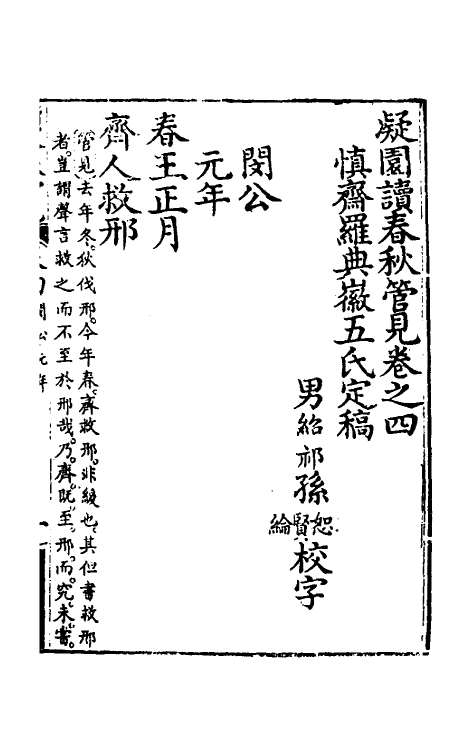 凝園讀春秋管見卷之四
慎齋羅典徽五氏定稿
男紹祁孫恕賢綸校字
閔公
元年
春王正月
齊人救邢
管見去年冬秋伐邢今年春齊救邢非緩也其但書救邢
者豈謂聲言救之而不至於邢哉乃齊既至邢而究未嘗
閔公元年